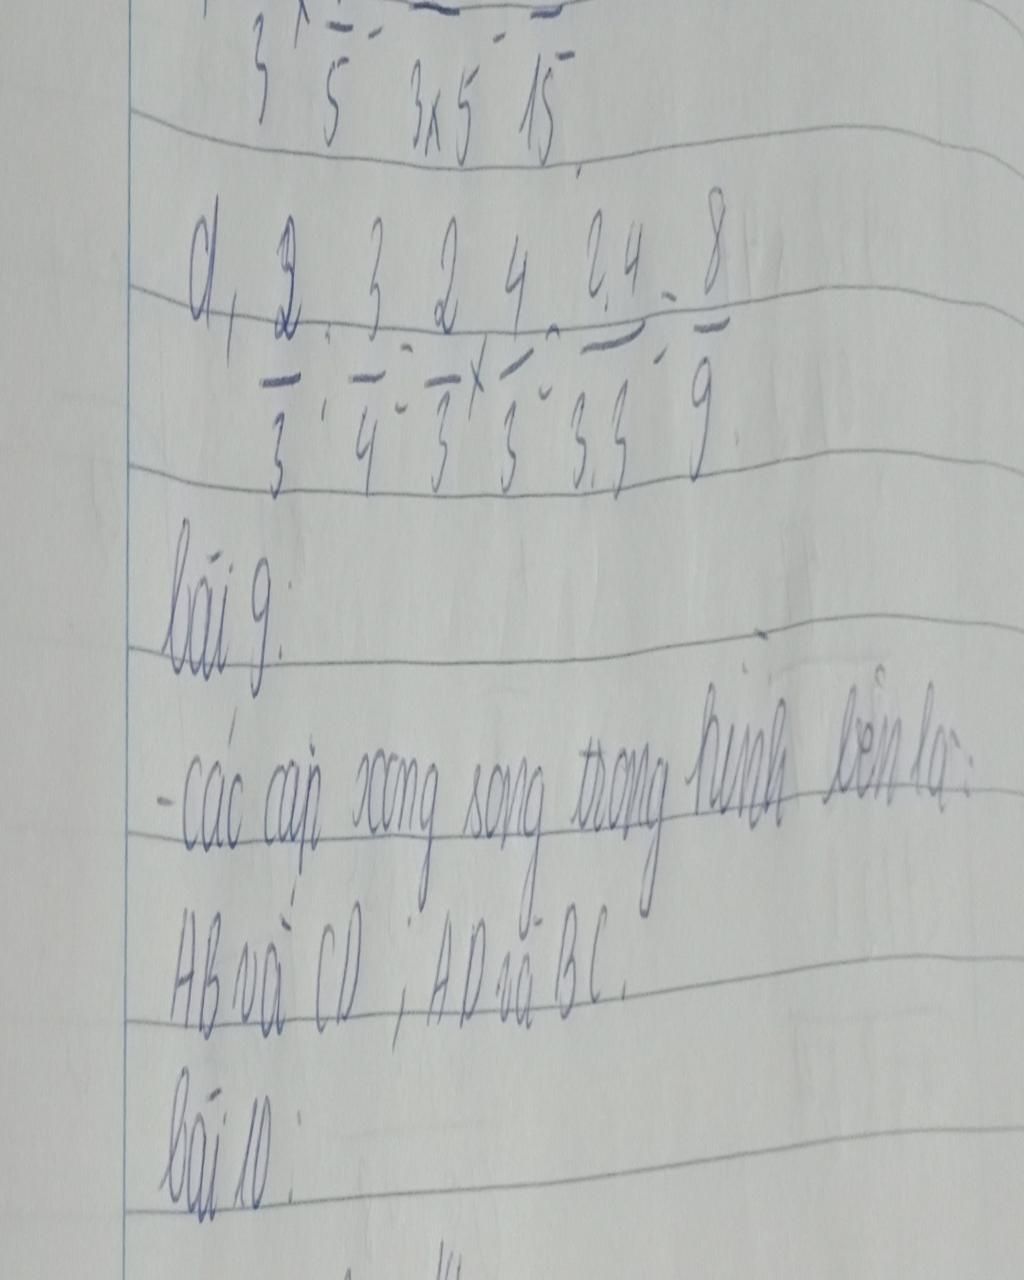 3 × 5 = 3x5 = 15
d, 2/3 : 3/4 = 2/3 x 4/3 = 2.4/3.3 = 8/9
bài 9:
- các cặp xong song trong hình bên là:
AB và CD ; AD và BC.
bài 10: